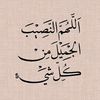 اَللّٰهُمَّ النَّصِيْبَ
الْجَمِيْلَ مِنْ
كُلِّ شَيْءٍ